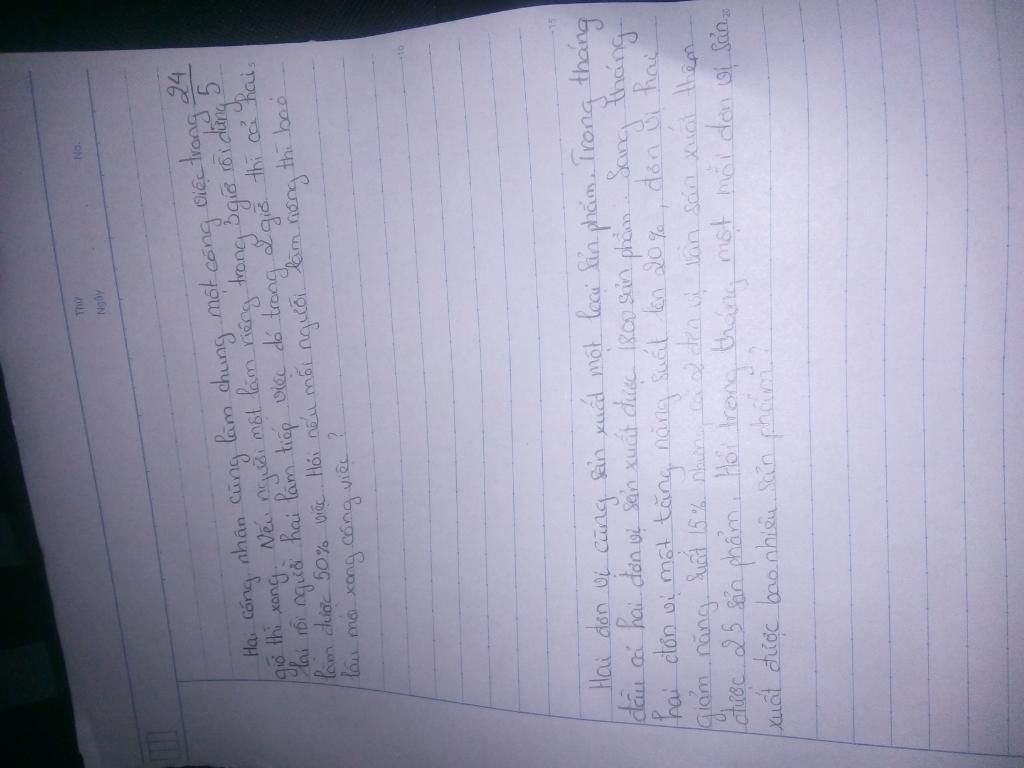 Thứ
No.
Ngày
Hai công nhân cùng làm chung một công việc trong 24/5
giờ thì xong. Nếu người một làm riêng trong 3 giờ rồi dừng
lại rồi người hai làm tiếp việc đó trong 2 giờ thì cả hai
làm được 50% việc. Hỏi nếu mỗi người làm riêng thì bao
lâu mới xong công việc?
10
15
Hai đơn vị cùng sản xuất một loại sản phẩm. Trong tháng
đầu cả hai đơn vị sản xuất được 1800 sản phẩm. Sang tháng
hai đơn vị một tăng năng suất lên 20%, đơn vị hai
giảm năng suất 15% nhưng cả 2 đơn vị vẫn sản xuất thêm
được 25 sản phẩm. Hỏi trong tháng một mỗi đơn vị sản
20
xuất được bao nhiêu sản phẩm?